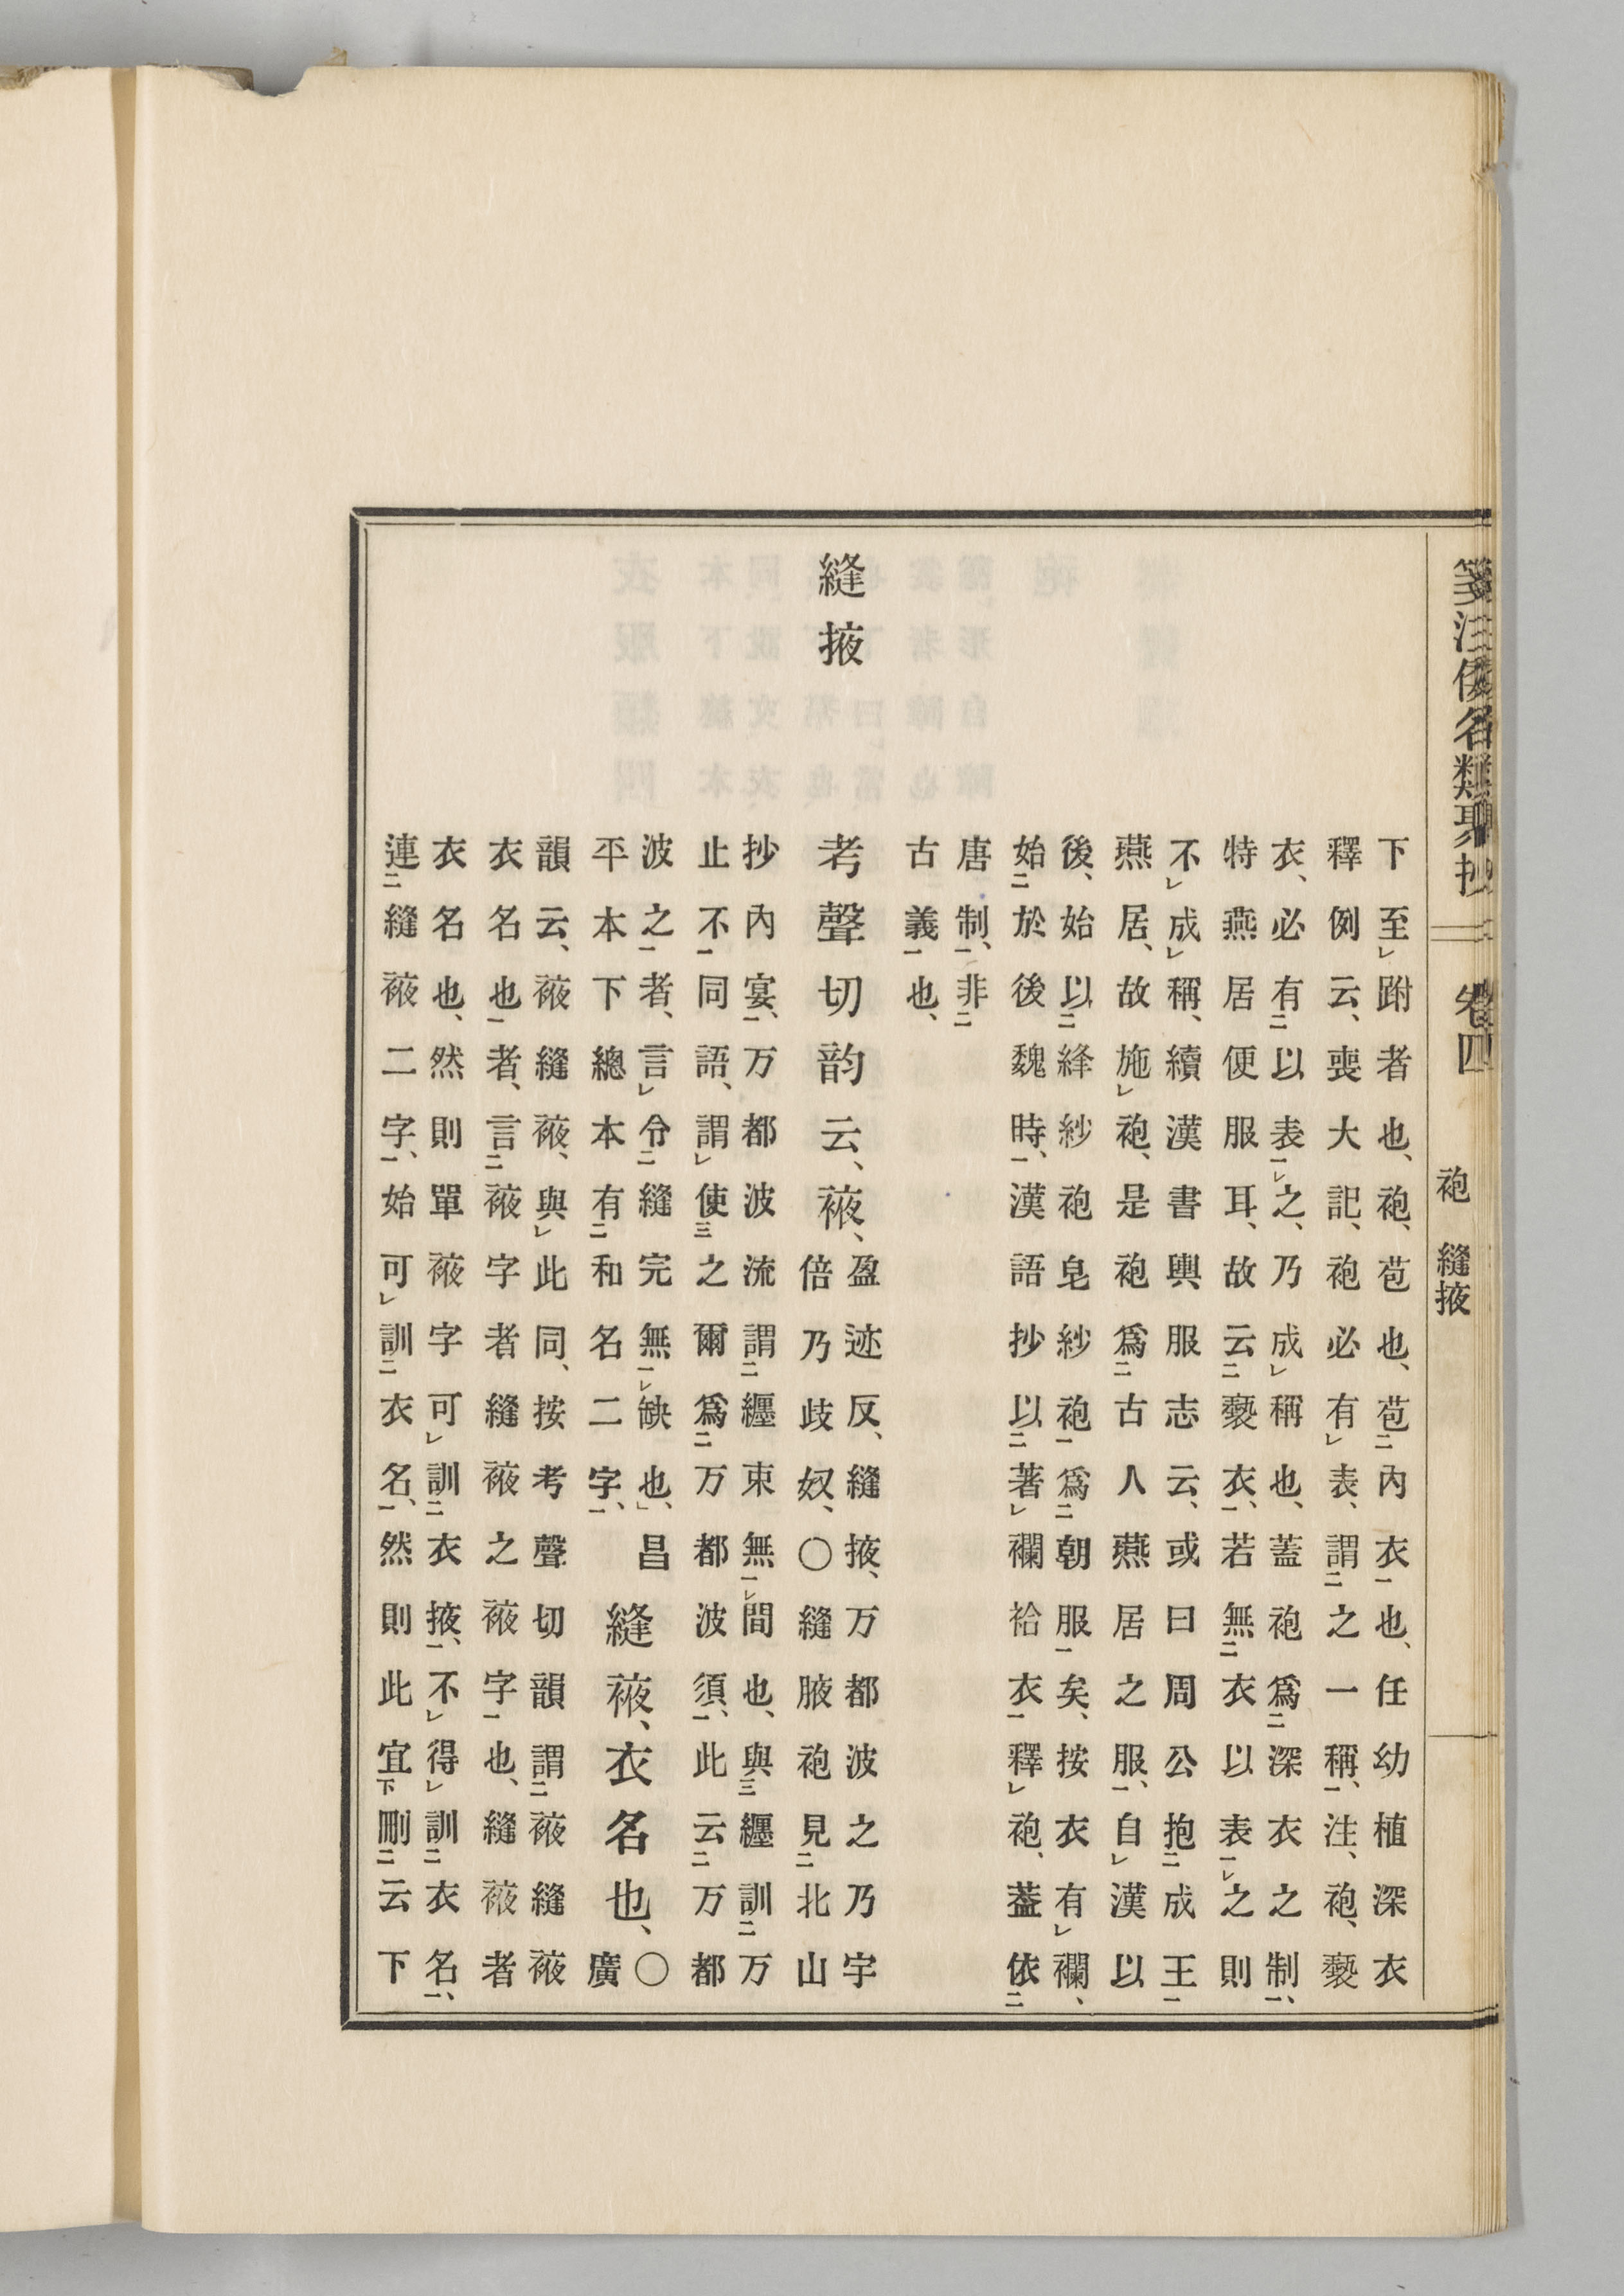 箋注倭名類聚抄 卷四 袍 縫掖
下至跗者也、袍、苞也、苞內衣也、任幼植深衣
釋例云、喪大記、袍必有表、謂之一稱、注、袍、褻
衣、必有以表之、乃成稱也、蓋袍爲深衣之制、
特燕居便服耳、故云褻衣、若無衣以表之則
不成稱、續漢書輿服志云、或曰周公抱成王
燕居、故施袍、是袍爲古人燕居之服、自漢以
後、始以絳紗袍皂紗袍爲朝服矣、按衣有襴、
始於後魏時、漢語抄以著襴袷衣釋袍、葢依
唐制、非
古義也、
縫掖
考聲切韵云、䘸、
盈迹反、縫掖、万都波之乃宇
倍乃歧奴、〇縫腋袍見北山
抄內宴、万都波流謂纒束無間也、與纒訓万
止不同語、謂使之爾爲万都波須、此云万都
波之者、言令縫完無缺也、昌
平本下總本有和名二字、
縫䘸、衣名也、
〇廣
韻云、䘸縫䘸、與此同、按考聲切韻謂䘸縫䘸
衣名也者、言䘸字者縫䘸之䘸字也、縫䘸者
衣名也、然則單䘸字可訓衣掖、不得訓衣名、
連縫䘸二字、始可訓衣名、然則此宜刪云下